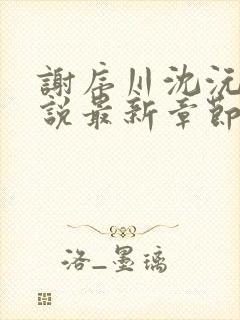 謝辰川沈沅
說最新章節
洛_墨璃